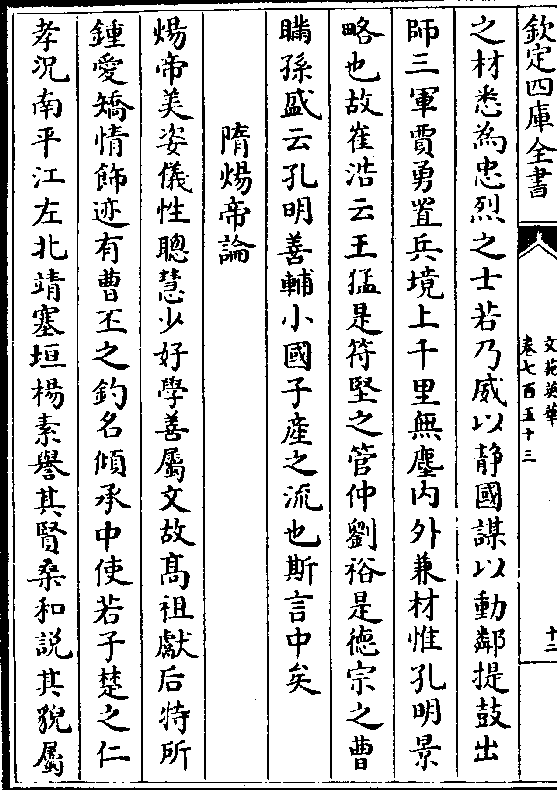 欽定四庫全書
文苑英華
卷七百五十三
十三
之材悉為忠烈之士若乃威以静國謀以動鄰提鼓出
師三軍賈勇置兵境上千里無塵内外兼材惟孔明景
略也故崔浩云王猛是符堅之管仲劉裕是徳宗之曹
瞞孫盛云孔明善輔小國子産之流也斯言中矣
隋煬帝論
煬帝美姿儀性聰慧少好學善屬文故髙祖獻后特所
鍾愛矯情飾迹有曹丕之釣名傾承中使若子楚之仁
孝況南平江左北靖塞垣楊素譽其賢桑和説其貌屬